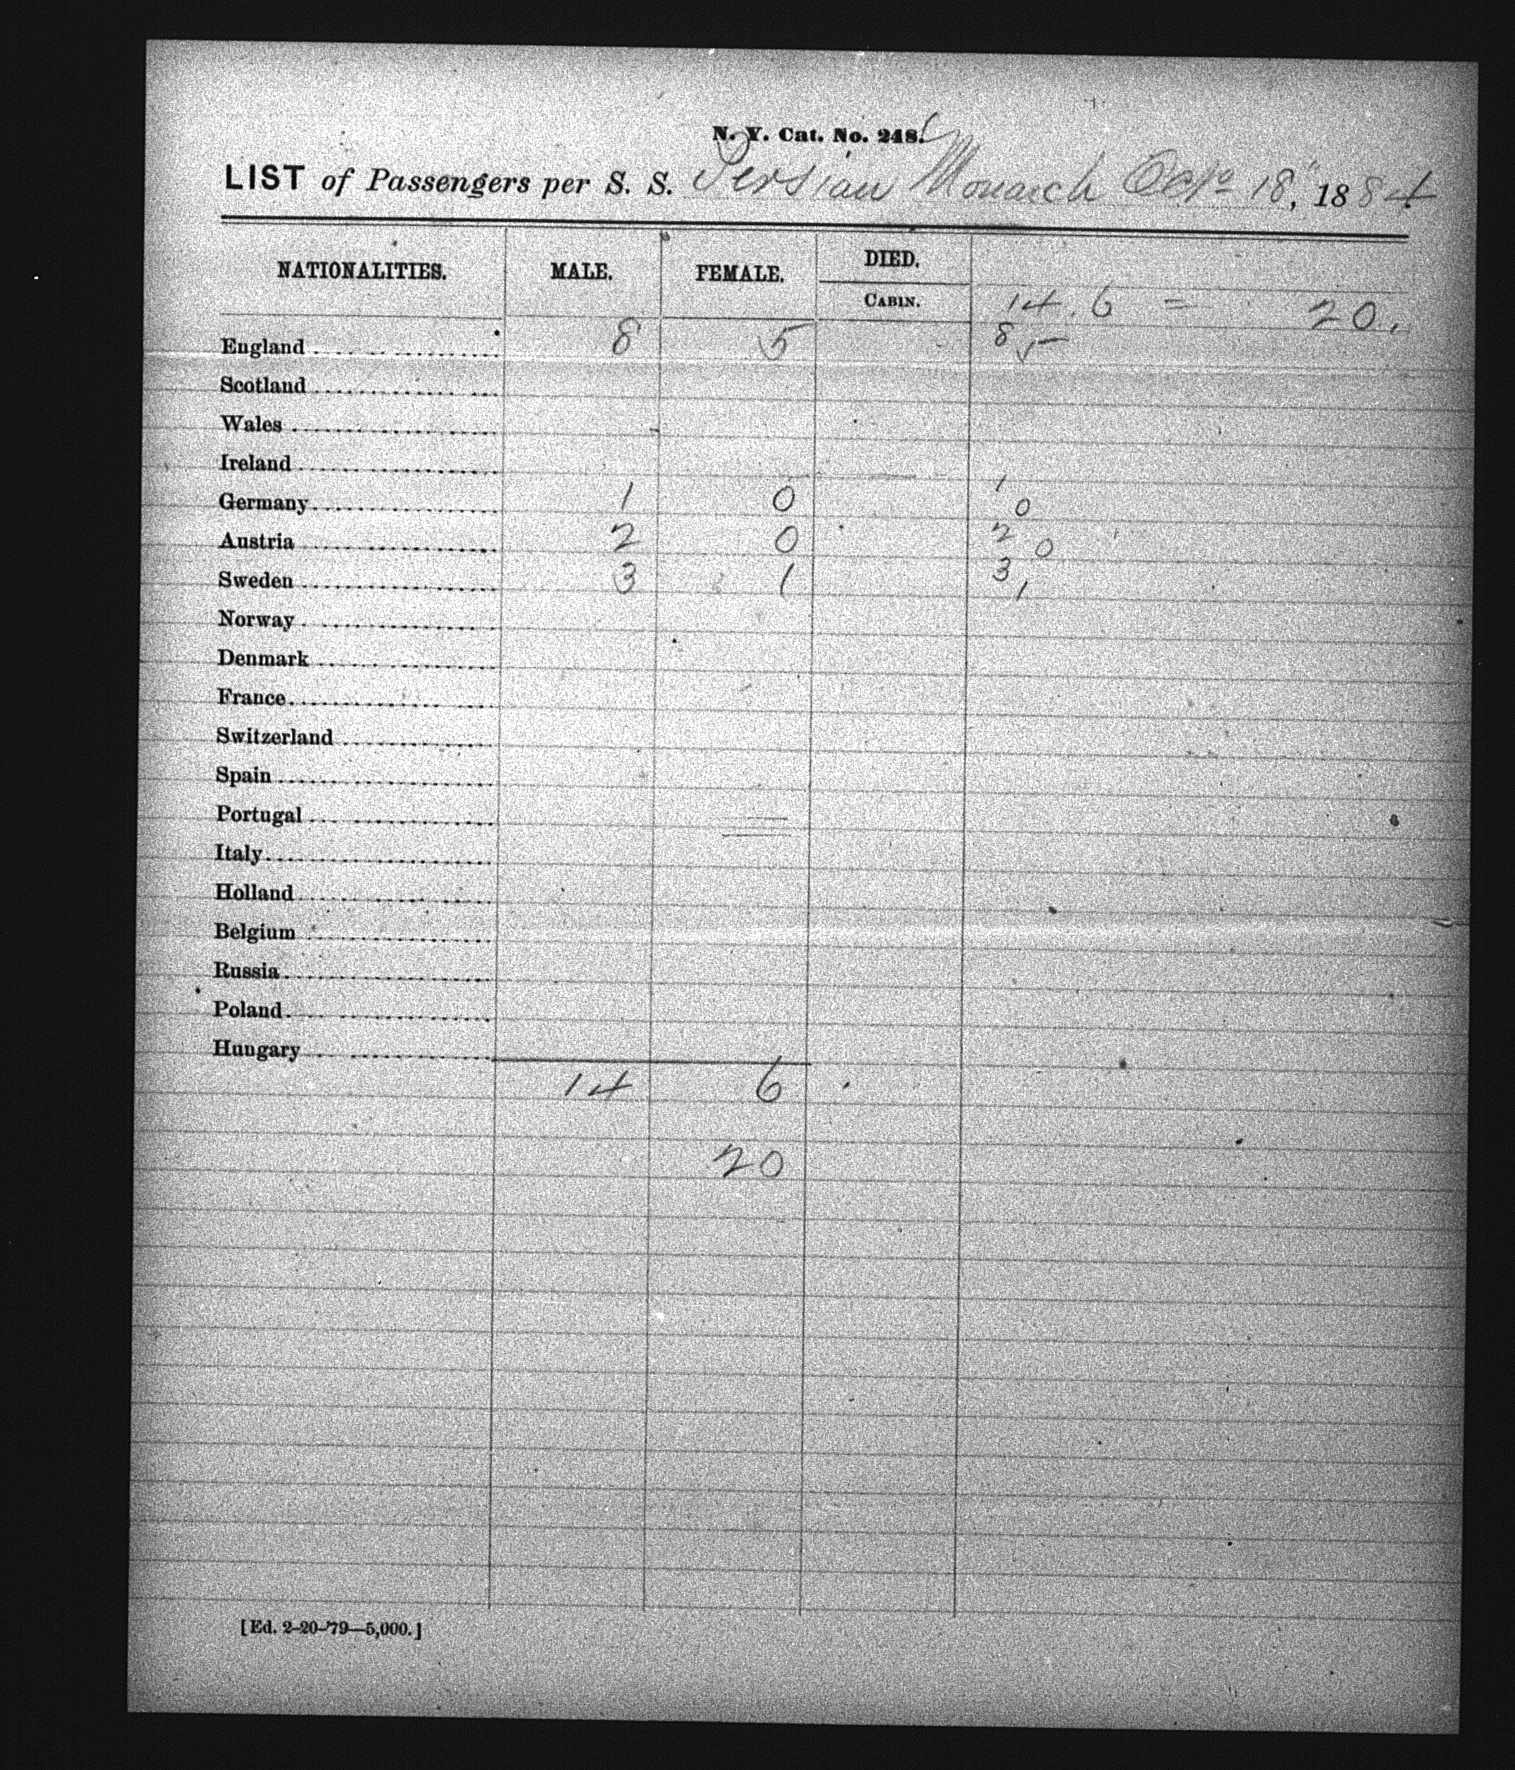 N. Y. Cat. No. 248.
LIST of Passengers per S. S. Persian Monarch Oct 18, 1884
NATIONALITIES. MALE. FEMALE. DIED.
CABIN. 14. 6 = 20.
England 8 5 8 5
Scotland
Wales
Ireland
Germany 1 0 1 0
Austria 2 0 2 0
Sweden 3 1 3 1
Norway
Denmark
France
Switzerland
Spain
Portugal
Italy
Holland
Belgium
Russia
Poland
Hungary
14 6
20
[Ed. 2-20-'79—5,000.]